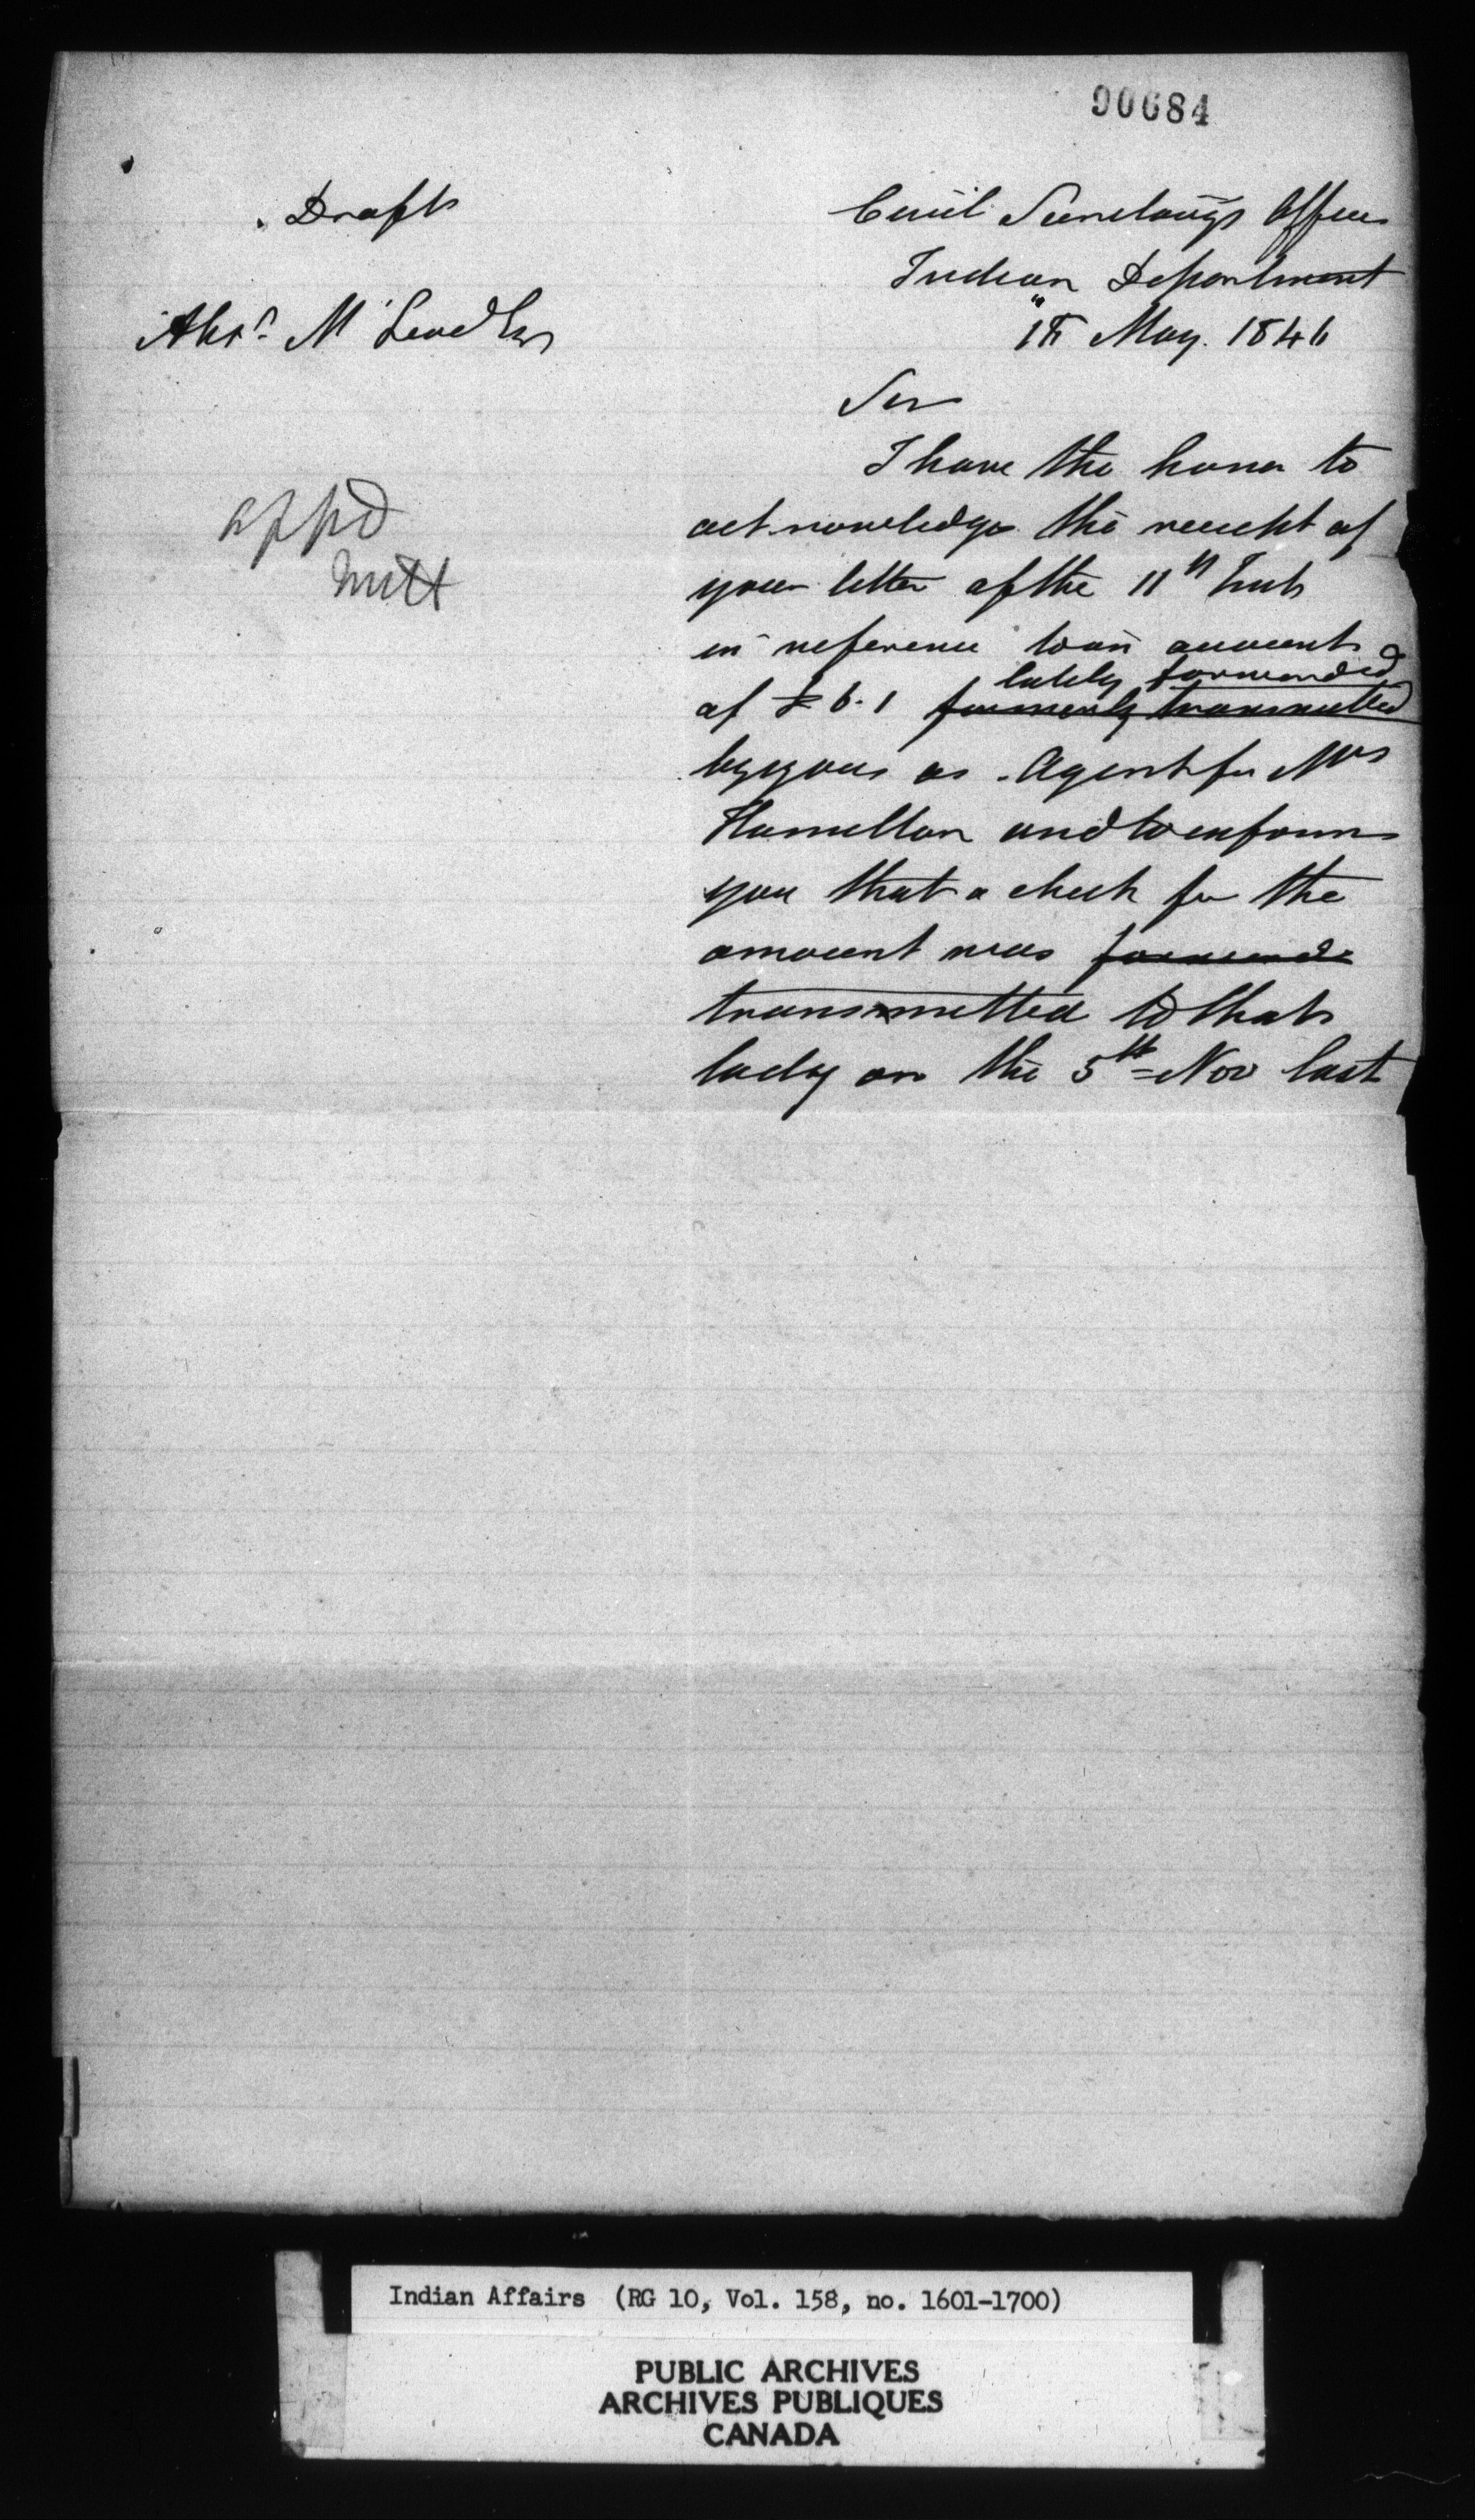 90684
Draft
Civil Secretary's Office
Indian Department
18 May. 1846
Alexr. McLeod Esqr
Sir
I have the honor to
acknowledge the receipt of
appd
your letter of the 11th Inst
in reference to an account
lately forwarded
of £ 6.1 formerly transmitted
by you as Agent for Mrs
Hamilton and to inform
you that a check for the
amount was forwarde
transmitted to that
lady on the 5th Nov last
Indian Affairs (RG 10, Vol. 158, no. 1601-1700)
PUBLIC ARCHIVES
ARCHIVES PUBLIQUES
CANADA